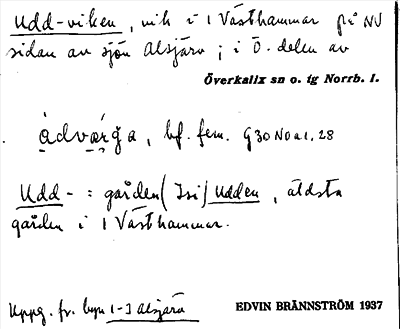 Udd-viken, vik i 1 Västhammar på NV
sidan av sjön Alsjärv; i Ö. delen av
Överkalix sn o. tg Norrb. l.
bf. fem. G30 No a 1. 28
Udd- = gården (Isi) Udden, äldsta
gården i 1 Västhammar.
Uppg. fr. byn 1-3 Alsjärv
EDVIN BRÄNNSTRÖM 1937